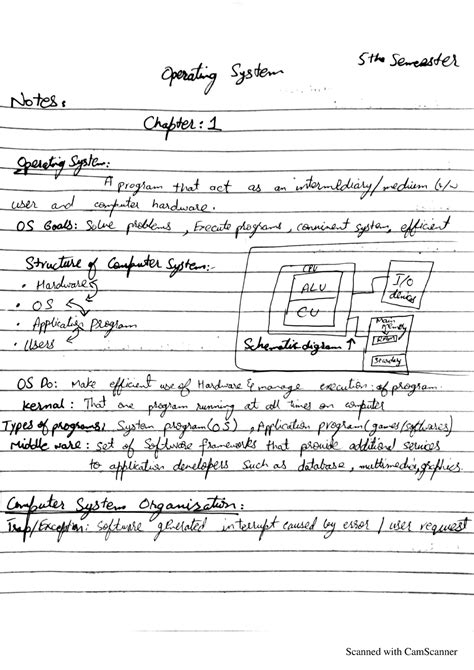 Operating System
5th Semester
Notes:
Chapter: 1
Operating System:
A program that act as an intermediary/medium b/w
user and computer hardware.
OS Goals: Solve problems, Execute programs, convinient system, efficient
Structure of Computer System:-
• Hardware
• OS
• Application Program
• Users
CPU
ALU
CU
I/O
devices
Main
Memory
RAM
Secondary
Schematic diagram ↑
OS Do: Make efficient use of Hardware & manage execution of program
Kernal: That one program running at all times on computer
Types of programs: System program(OS), Application program (games/softwares)
Middle ware: set of Software frameworks that provide additional services
to application developers such as database, multimedia, graphics.
Computer System Organisation:
Trap/Exception: software generated interrupt caused by error / user request
Scanned with CamScanner